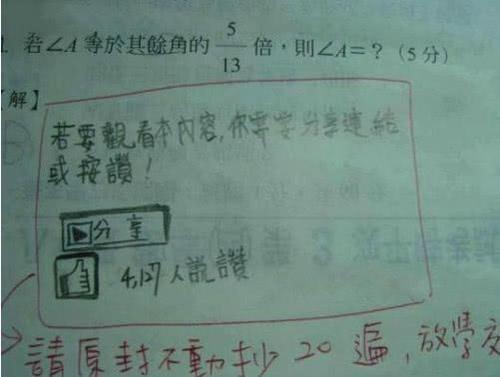 1. 若∠A等於其餘角的 5/13 倍，則∠A=？（5分）
【解】
若要觀看本內容，你要分享連結
或按讚！
分享
4,127人說讚
請原封不動抄20遍，放學交